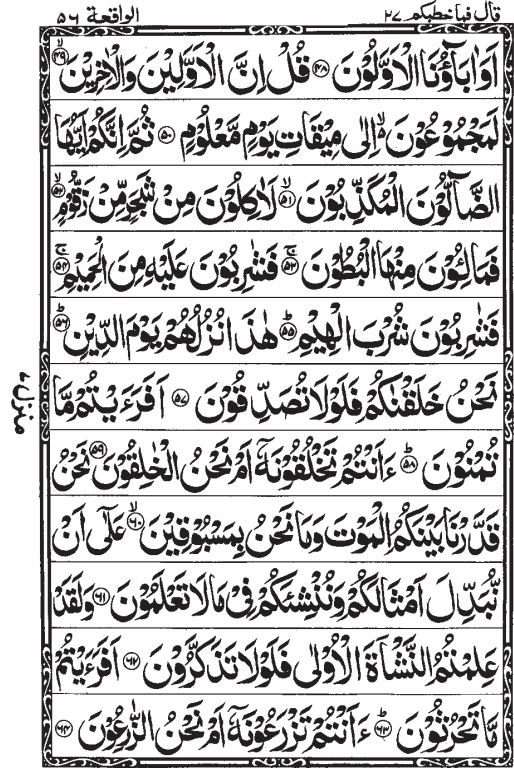 قال فما خطبكم ٢٧ الواقعة ٥٦
اَوَاٰبَآؤُنَا الْاَوَّلُوْنَ ﴿۴۸﴾ قُلْ اِنَّ الْاَوَّلِيْنَ وَالْاٰخِرِيْنَ ﴿ۙ۴۹﴾
لَمَجْمُوْعُوْنَ ۙ اِلٰى مِيْقَاتِ يَوْمٍ مَّعْلُوْمٍ ﴿۵۰﴾ ثُمَّ اِنَّكُمْ اَيُّهَا
الضَّآلُّوْنَ الْمُكَذِّبُوْنَ ﴿ۙ۵۱﴾ لَاٰكِلُوْنَ مِنْ شَجَرٍ مِّنْ زَقُّوْمٍ ﴿ۙ۵۲﴾
فَمَالِـُٔوْنَ مِنْهَا الْبُطُوْنَ ﴿ۚ۵۳﴾ فَشٰرِبُوْنَ عَلَيْهِ مِنَ الْحَمِيْمِ ﴿ۚ۵۴﴾
فَشٰرِبُوْنَ شُرْبَ الْهِيْمِ ﴿ؕ۵۵﴾ هٰذَا نُزُلُهُمْ يَوْمَ الدِّيْنِ ﴿ؕ۵۶﴾
نَحْنُ خَلَقْنٰكُمْ فَلَوْلَا تُصَدِّقُوْنَ ﴿۵۷﴾ اَفَرَءَيْتُمْ مَّا
تُمْنُوْنَ ﴿ؕ۵۸﴾ ءَاَنْتُمْ تَخْلُقُوْنَهٗۤ اَمْ نَحْنُ الْخٰلِقُوْنَ ﴿۵۹﴾ نَحْنُ
قَدَّرْنَا بَيْنَكُمُ الْمَوْتَ وَمَا نَحْنُ بِمَسْبُوْقِيْنَ ﴿ۙ۶۰﴾ عَلٰٓى اَنْ
نُّبَدِّلَ اَمْثَالَكُمْ وَنُنْشِئَكُمْ فِيْ مَا لَا تَعْلَمُوْنَ ﴿۶۱﴾ وَلَقَدْ
عَلِمْتُمُ النَّشْاَةَ الْاُوْلٰى فَلَوْلَا تَذَكَّرُوْنَ ﴿۶۲﴾ اَفَرَءَيْتُمْ
مَّا تَحْرُثُوْنَ ﴿ؕ۶۳﴾ ءَاَنْتُمْ تَزْرَعُوْنَهٗۤ اَمْ نَحْنُ الزّٰرِعُوْنَ ﴿۶۴﴾
منزل ۷